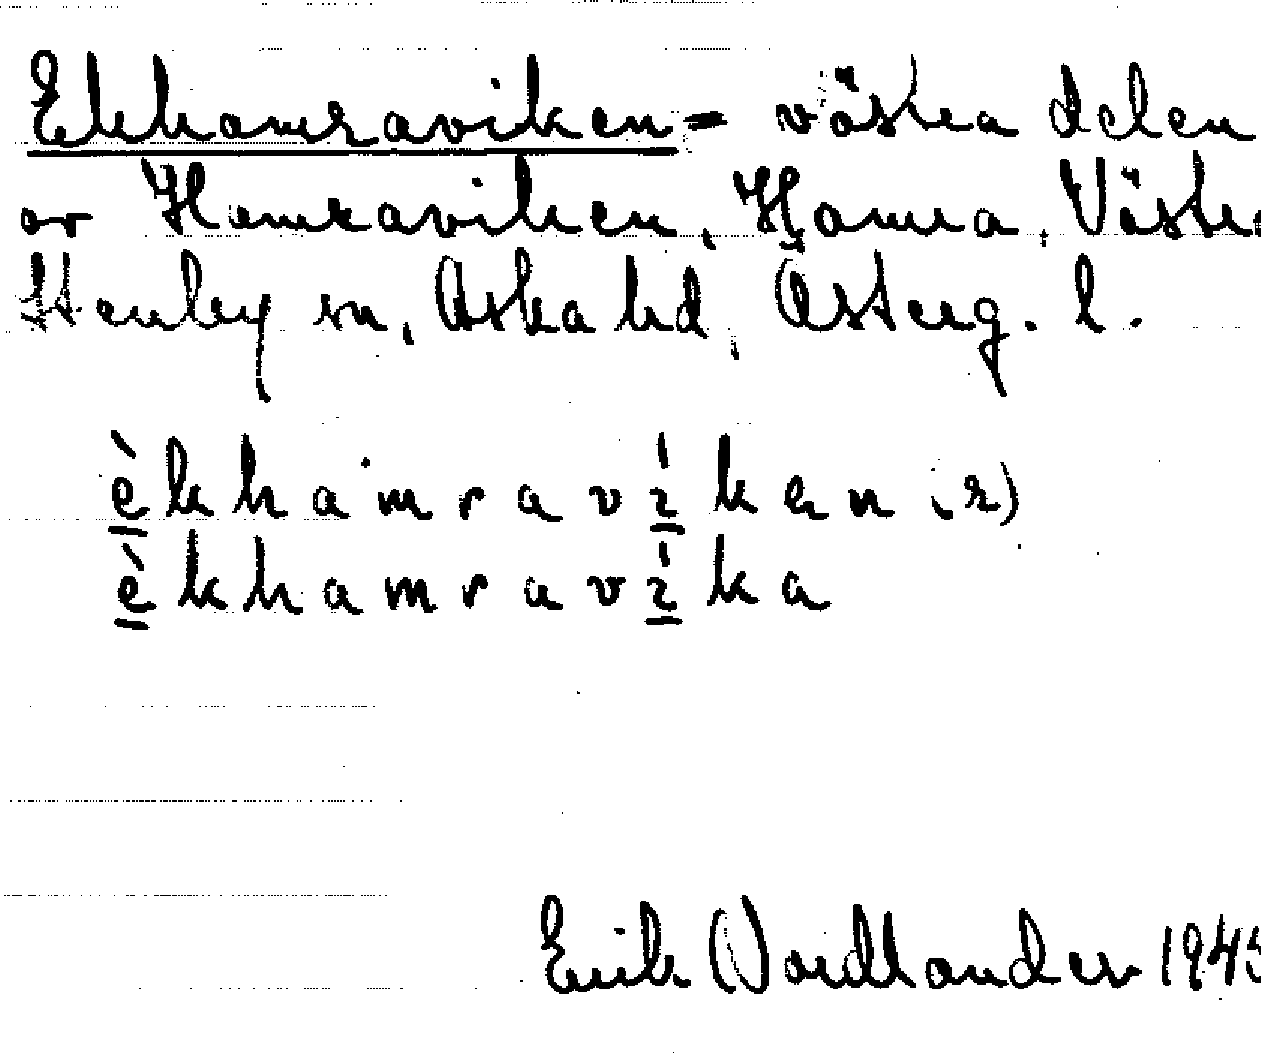 Ekhamraviken = västra delen
av Hamraviken, Hamra, Västra
Stenby sn, Aska hd, Österg. l.
èkhamravíken (r)
èkhamravíka
Erik Nordlander 1945